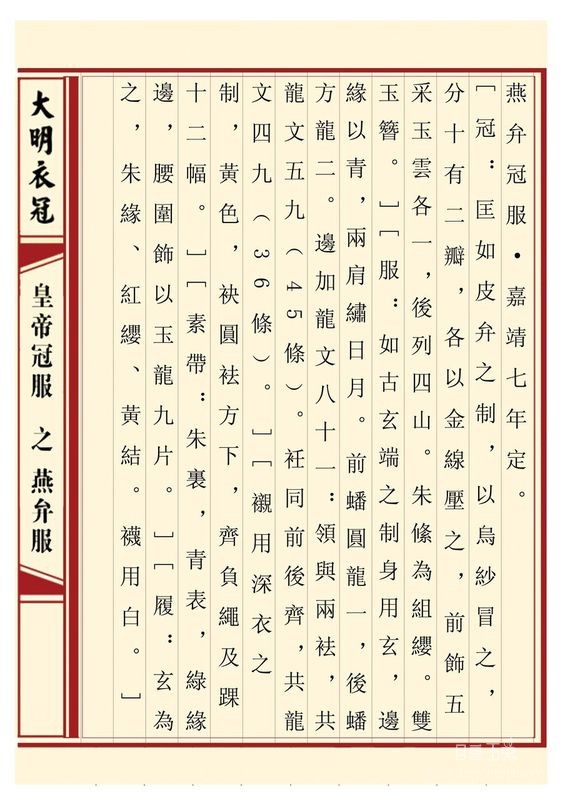 燕弁冠服•嘉靖七年定。
［冠：匡如皮弁之制，以烏紗冒之，
分十有二瓣，各以金線壓之，前飾五
采玉雲各一，後列四山。朱絛為組纓。雙
玉簪。］［服：如古玄端之制身用玄，邊
緣以青，兩肩繡日月。前蟠圓龍一，後蟠
方龍二。邊加龍文八十一：領與兩袪，共
龍文五九（45條）。衽同前後齊，共龍
文四九（36條）。］［襯用深衣之
制，黃色，袂圓袪方下，齊負繩及踝
十二幅。］［素帶：朱裏，青表，綠緣
邊，腰圍飾以玉龍九片。］［履：玄為
之，朱緣、紅纓、黃結。襪用白。］
大明衣冠
皇帝冠服 之 燕弁服